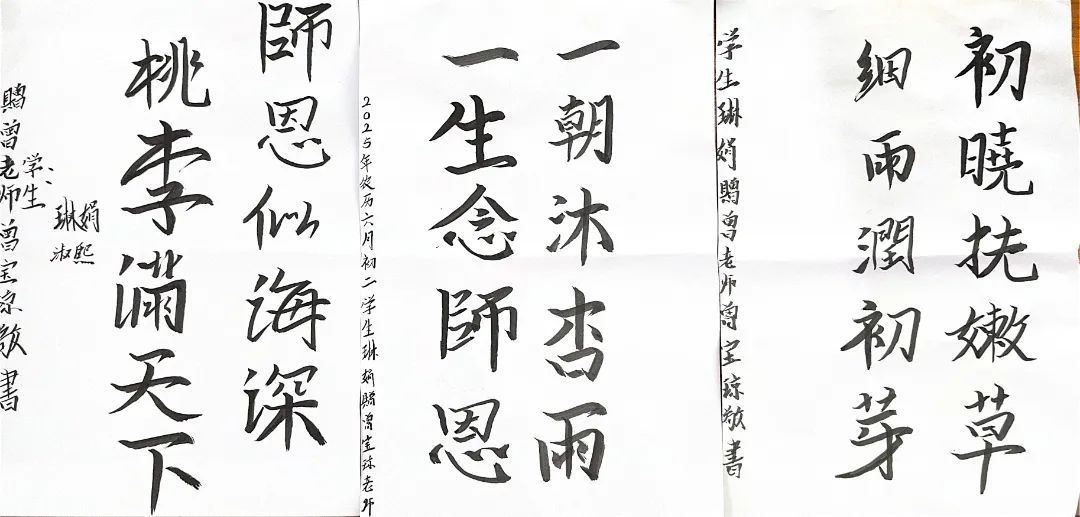 師恩似海深
桃李滿天下
学生：琳娟
淑熙
贈曾老师曾宝琼敬書
一朝沐杏雨
一生念師恩
2025年农历六月初二学生琳娟贈曾宝琼老师
初曉抚嫩草
細雨潤初芽
学生琳娟贈曾老师曾宝琼敬書